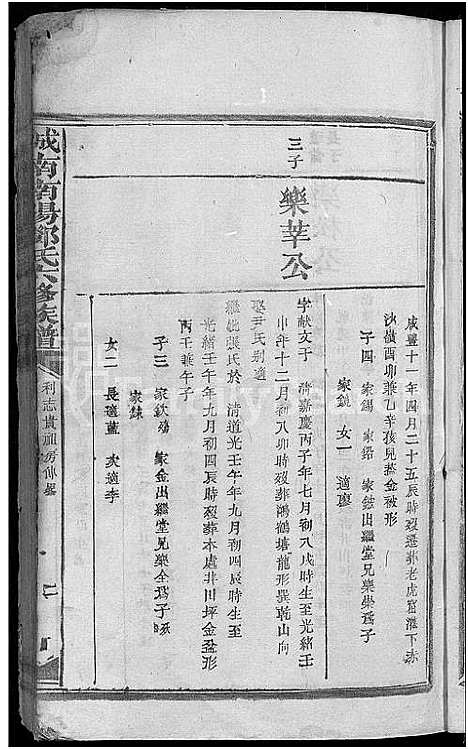 咸豐十一年四月二十五辰時殁葬老虎窩灘下赤
沙嶺酉卯兼乙辛孩兒抱金被形
子四 家錫 家鉛 家鋕出繼堂兄樂崇爲子
家鏡 女一 適廖
三子
樂莘公
字獻文于 清嘉慶丙子年七月初八戌時生至光緒壬
申年十二月初八卯時殁葬鴻鶴塘龍形巽乾山向
娶尹氏別適
繼妣張氏於 清道光壬午年九月初四辰時生至
光緒壬午年九月初四辰時殁葬本處井川坪金盆形
丙壬兼午子
子三 家欽 殤 家金出繼堂兄樂全爲子
家錬
女二 長適藍 次適李
城南南陽鄧氏六修族譜
利志貴 房傳